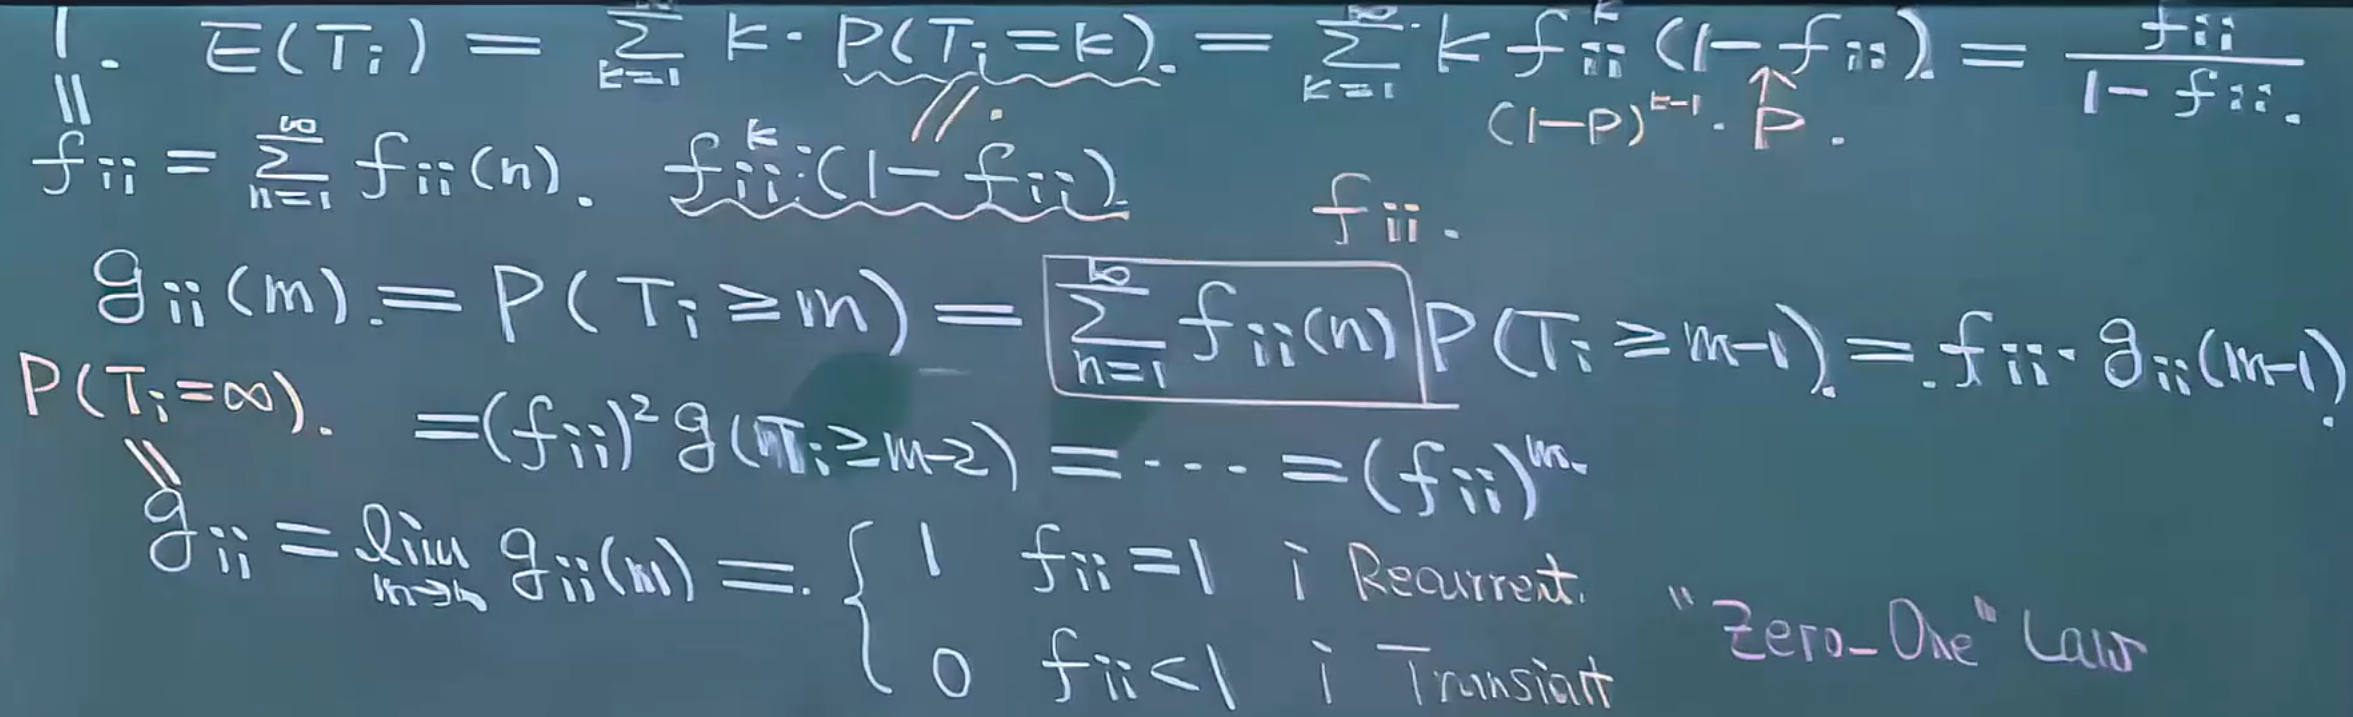 1. E(Tᵢ) = ∑_{k=1}^{∞} k · P(Tᵢ = k). = ∑_{k=1}^{∞} k fᵢᵢ^k (1 − fᵢᵢ). = fᵢᵢ / (1 − fᵢᵢ).
|| // ↑
(1−P)^{k−1} · P.
fᵢᵢ = ∑_{n=1}^{∞} fᵢᵢ(n). fᵢᵢ^k · (1 − fᵢᵢ).
fᵢᵢ.
gᵢᵢ(m). = P(Tᵢ ≥ m) = ∑_{n=1}^{∞} fᵢᵢ(n) P(Tᵢ ≥ m−1). = . fᵢᵢ · gᵢᵢ(m−1).
P(Tᵢ = ∞). = (fᵢᵢ)² g(Tᵢ ≥ m−2) = ··· = (fᵢᵢ)^m.
||
gᵢᵢ = lim_{m→∞} gᵢᵢ(m) = . { 1 fᵢᵢ = 1 i Recurrent.
0 fᵢᵢ < 1 i Transient
"Zero-One" Law